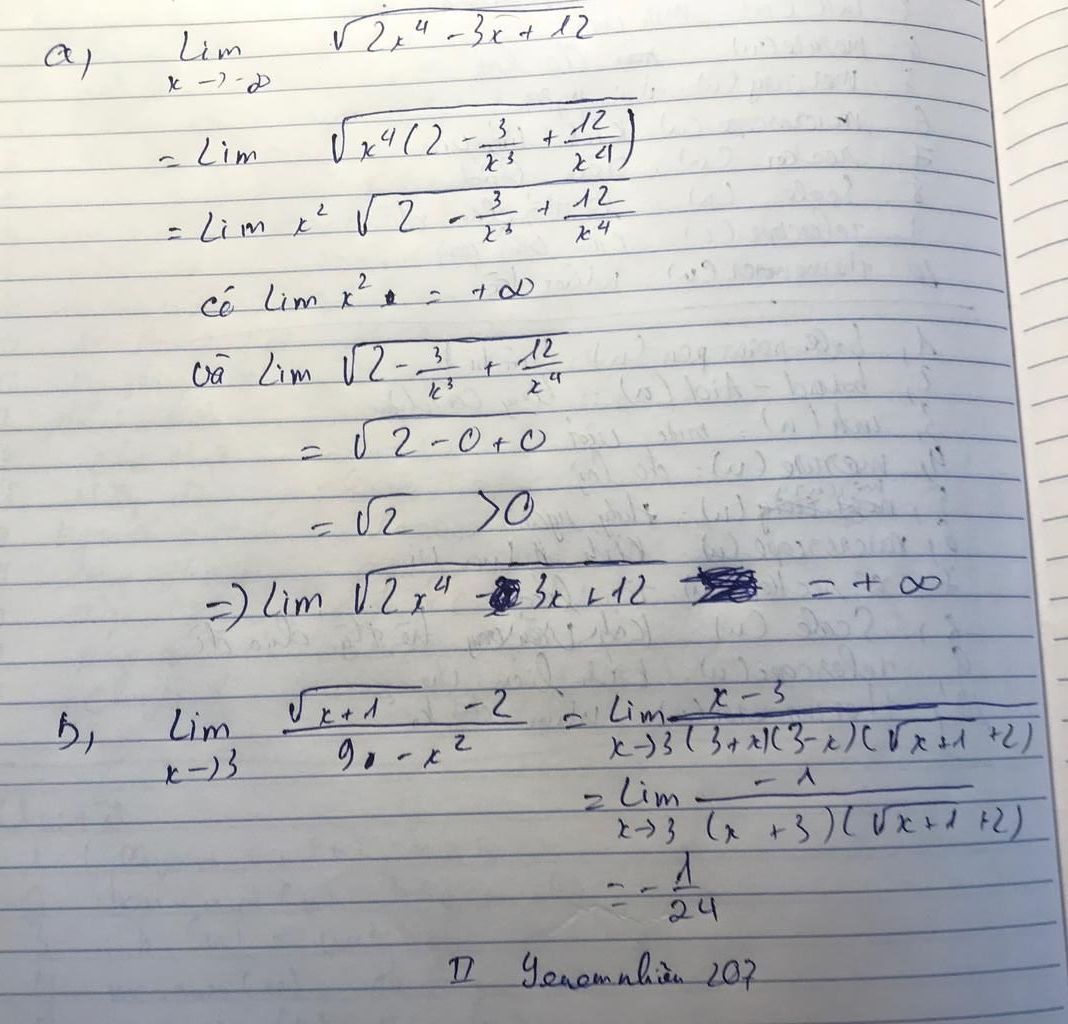 a, lim x→-∞ √(2x⁴ - 3x + 12)
= lim √(x⁴(2 - 3/x³ + 12/x⁴))
= lim x² √(2 - 3/x³ + 12/x⁴)
có lim x² = +∞
và lim √(2 - 3/x³ + 12/x⁴)
= √(2 - 0 + 0)
= √2 > 0
=) lim √(2x⁴ - 3x + 12) = +∞
b, lim x→3 (√(x+1) - 2)/(9 - x²) = lim x→3 (x - 3)/((3+x)(3-x)(√(x+1) + 2))
= lim x→3 -1/((x + 3)(√(x+1) + 2))
= - 1/24
Yenemnhiên 207